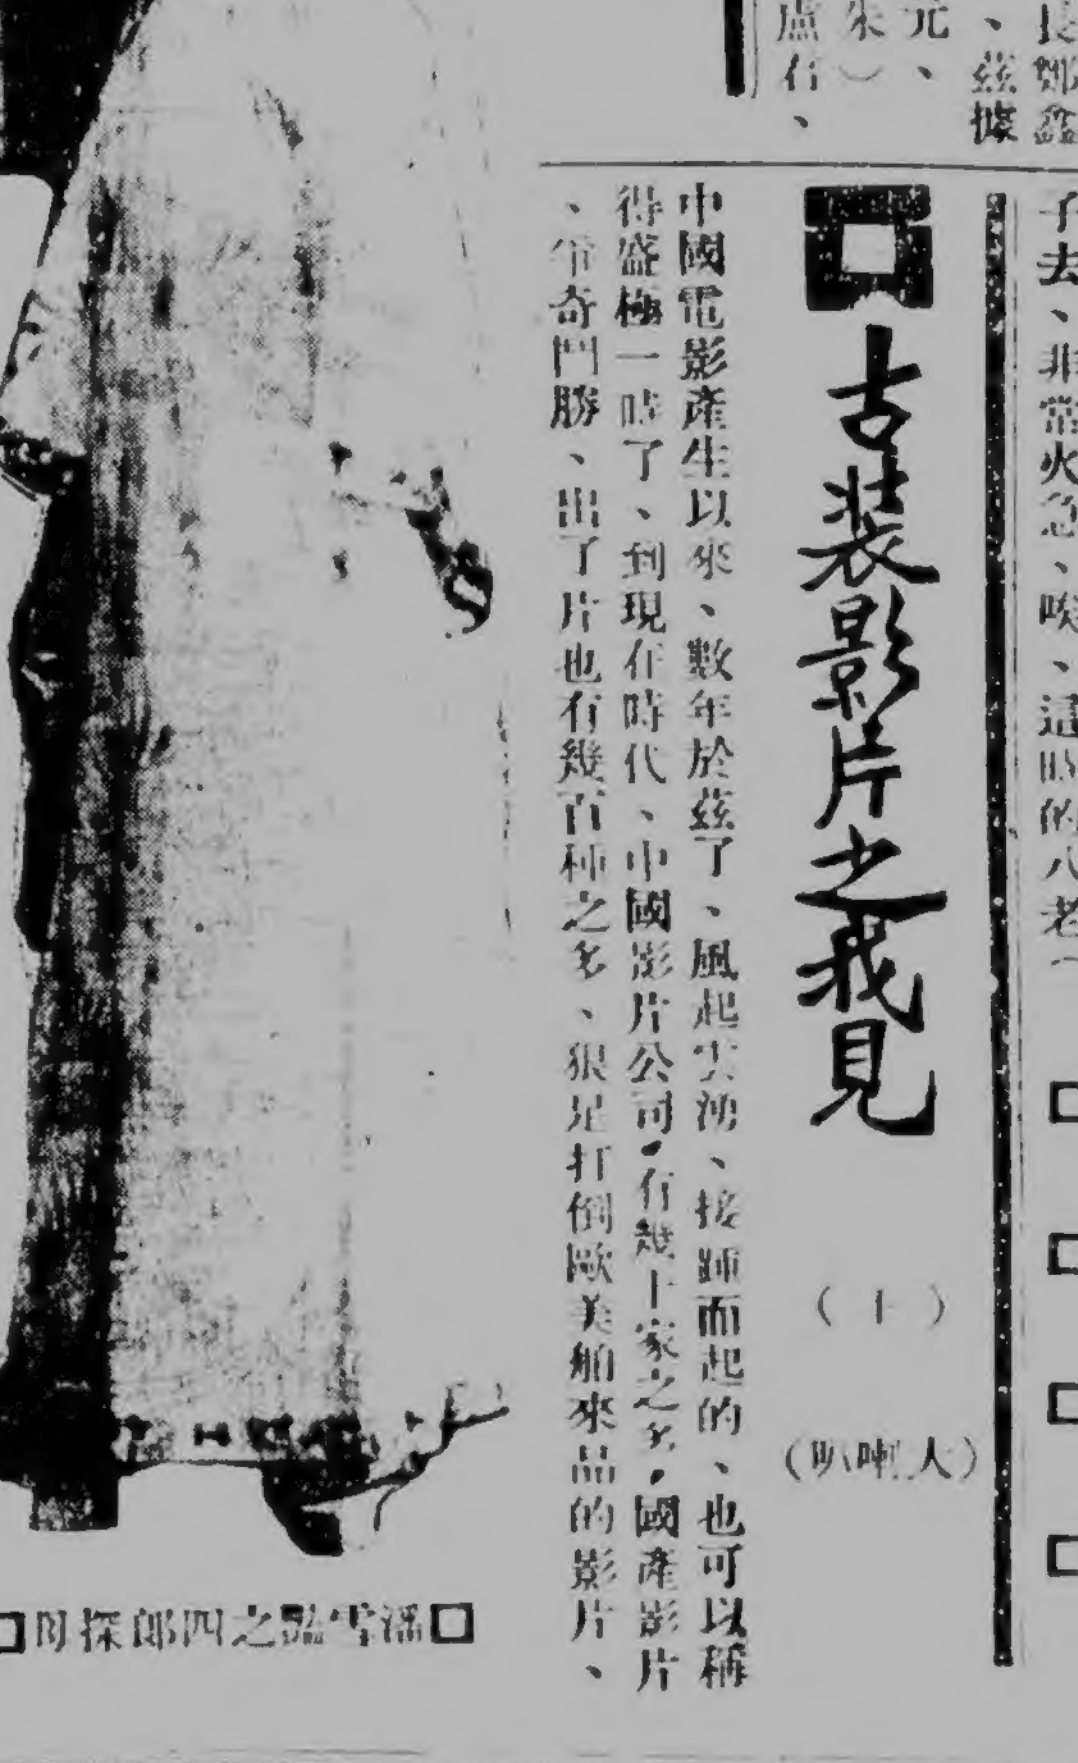 長鄭鑫
、茲據
元、
朱）
盧石、
子去、非常火急、唉、這時的八老（
古装影片之我見
（十）
（叭喇大）
中國電影產生以來、數年於茲了、風起雲湧、接踵而起的、也可以稱
得盛極一時了、到現在時代、中國影片公司，有幾十家之多，國產影片
、爭奇鬥勝、出了片也有幾百種之多、狠足打倒歐美舶來品的影片、
□潘雪豔之四郎探母□